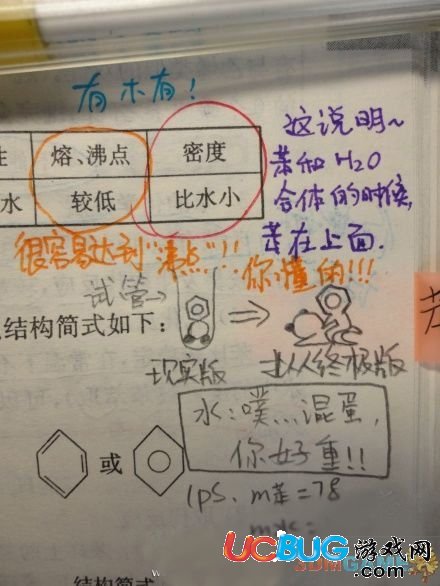 有木有!
性 熔、沸点 密度
水 较低 比水小
这说明~
苯和H2O
合体的时候,
苯在上面.
很容易达到"沸点"!!
你懂的!!!
试管→
结构简式如下:
⇒
现实版
终极版
水:噗...混蛋,
你好重!!
或
1PS. m苯=78
m水=
UCBUG游戏网
.com
结构简式